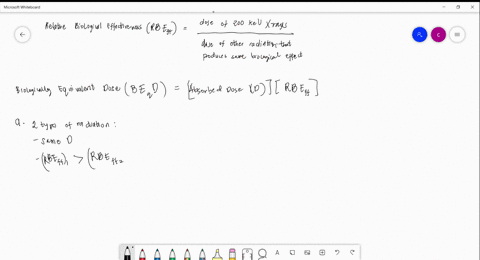 Microsoft Whiteboard
Relative Biological Effectiveness (RBE_ff) = dose of 200 keV X rays
dose of other radiation that
produces same biological effect
C
Biologically Equivalent Dose (BE_qD) = [Absorbed Dose (D)] [RBE_ff]
Q. 2 types of radiation:
- same D
- (RBE_ff)_1 > (RBE_ff_2